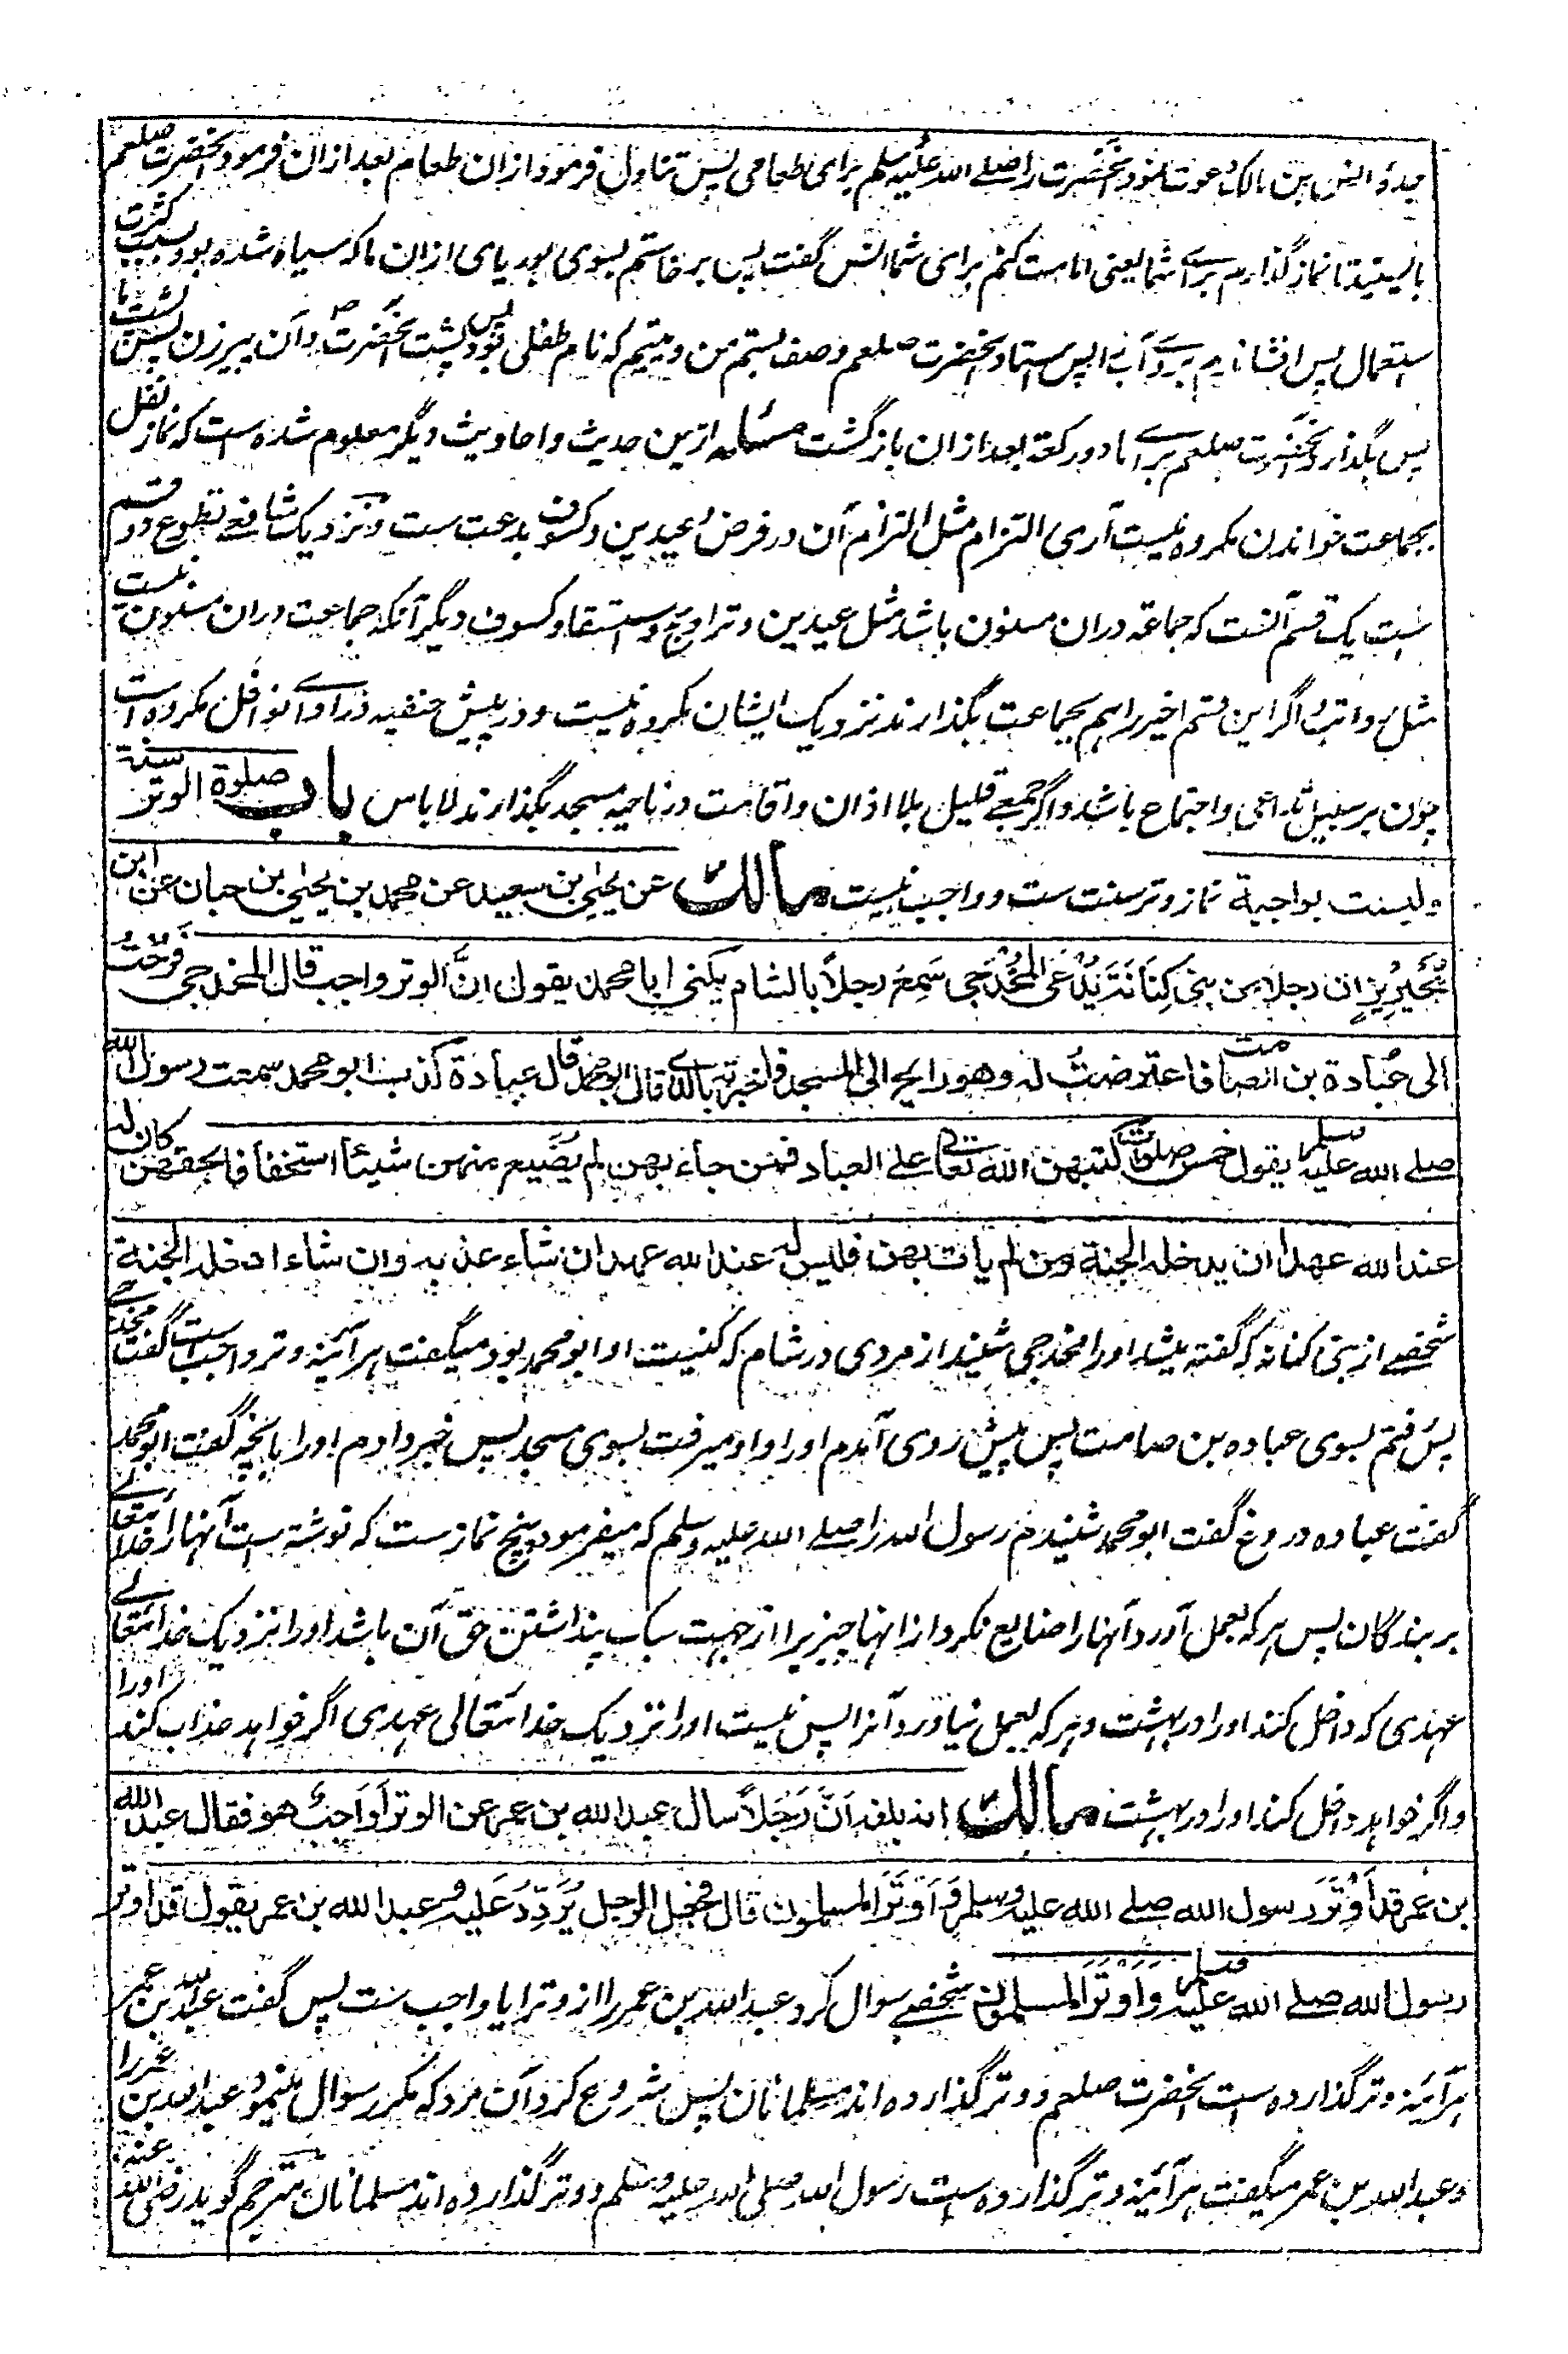 جدهٔ انس بن مالک دعوت نمود آنحضرت را صلے الله علیه وسلم برای طعامی پس تناول فرمود ازان طعام بعد ازان فرمود آنحضرت صلعم
بایستید تا نماز گذارم برائے شما یعنی امامت کنم برای شما انس گفت پس برخاستم بسوی بوریای ازان ما که سیاه شده بود بسبب کثرت
استعمال پس افشاندیم بروے آب را پس بستاد آنحضرت صلعم وصف بستیم من و یتیم که نام طفلی بود پس پشت آنحضرت ص و آن پیرزن پس پشت ما
پس بگذارد آنحضرت صلعم برائے ما دو رکعة بعد ازان بازگشت مسئله ازین حدیث و احادیث دیگر معلوم شده است که نماز نفل
بجماعت خواندن مکروه نیست آری التزام مثل التزام آن در فرض و عیدین و کسوف بدعت ست و نزدیک شافعے تطوع دو قسم
ست یک قسم آنست که جماعة دران مسنون باشد مثل عیدین و تراویح و استسقا و کسوف دیگر آنکه جماعت دران مسنون نیست
مثل رواتب و اگر این قسم اخیر را هم بجماعت بگذارند نزدیک ایشان مکروه نیست و در پیش حنفیه ادائے نوافل مکروه است
چون بر سبیل تداعی و اجتماع باشد و اگر جمعے قلیل بلا اذان و اقامت در ناحیه مسجد بگذارند لا باس باب صلوة الوتر سنة
ولیست بواجبة نماز وتر سنت ست و واجب نیست مالك عن یحیٰی بن سعید عن محمد بن یحیٰی بن حبان عن ابن
مُحَیرِیزٍ ان رجلا من بنی كِنَانَة یُدْعَی المُخْدَجی سَمِعَ رجلاً بالشام یکنی ابا محمد یقول انَّ الوتر واجب قال المخدجی فرُحْتُ
الی عُبادة بن الصامت فاعترضتُ له وهو رایح الی المسجد فاخبرته بالذی قال ابو محمد قال عبادة کذب ابو محمد سمعت رسول الله
صلے الله علیه وسلم یقول خمس صلوات کتبهن الله تعالی علے العباد فمن جاء بهن لم یضَّیع منهن شیئا استخفافا بحقهن کان له
عند الله عهدا ان یدخله الجنة ومن لم یات بهن فلیس له عند الله عهد ان شاء عذبه وان شاء ادخله الجنة
شخصے از بنی کنانه که گفته میشد اورا مخدجی شنید از مردی در شام که کنیت او ابو محمد بود میگفت هرآئینه وتر واجب ست گفت مخدجے
پس رفتم بسوی عباده بن صامت پس پیش روی آمدم اورا و او میرفت بسوی مسجد پس خبر دادم اورا بانچه گفت ابو محمد
گفت عباده دروغ گفت ابو محمد شنیدم رسول الله را صلے الله علیه وسلم که میفرمود پنج نماز ست که نوشته ست آنها را خدا تعالے
بر بندگان پس هر که بعمل آورد آنها را ضایع نکرد از انها چیزی را از جهت سبک پنداشتن حق آن باشد اورا نزدیک خدا تعالے
عهدی که داخل کند اورا در بهشت و هر که بعمل نیاورد آنرا پس نیست اورا نزدیک خدا تعالی عهدی اگر خواهد عذاب کند اورا
و اگر خواهد داخل کند اورا در بهشت مالك انه بلغه اَنَّ رَجُلاً سال عبد الله بن عمر عن الوتر أوَاجِبٌ هو فقال عبد الله
بن عمر قد أوْتَرَ رسول الله صلے الله علیه وسلم وَ اَوتَرَ المسلمون قال فجعل الرجل یُرَدِّدُ عَلیه و عبد الله بن عمر یقول قد اوتر
رسول الله صلے الله علیه وسلم وَ اَوتَرَ المسلمون شخصے سوال کرد عبد الله بن عمر را از وتر ایا واجب ست پس گفت عبد الله بن عمر
هرآئینه وتر گذارده ست آنحضرت صلعم و وتر گذارده اند مسلمانان پس شروع کرد آن مرد که مکرر سوال مینمود عبد الله بن عمر را
و عبد الله بن عمر میگفت هرآئینه وتر گذارده ست رسول الله صلی الله علیه وسلم و وتر گذارده اند مسلمانان مترجم گوید رضی الله عنه